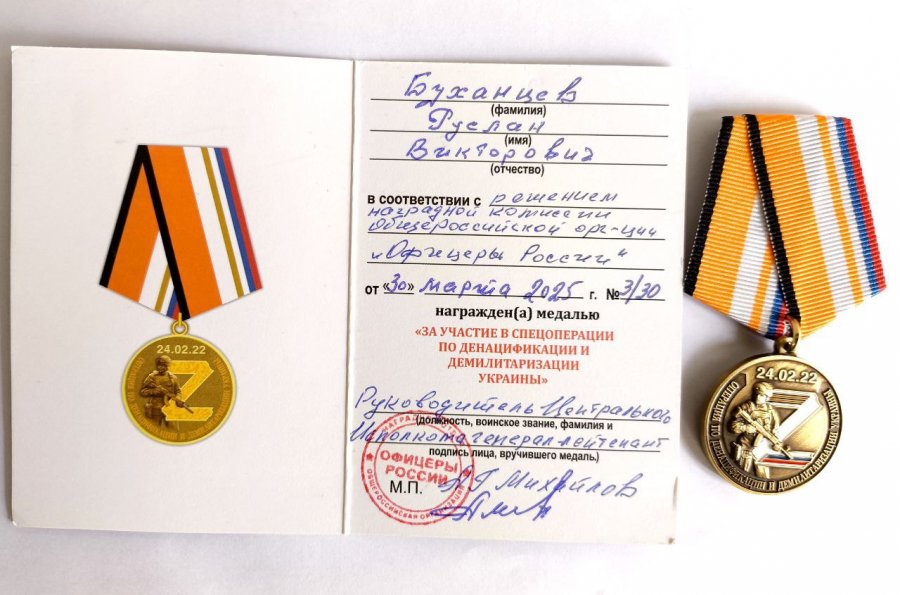 24.02.22
Z
Буханцев
(фамилия)
Руслан
(имя)
Викторович
(отчество)
в соответствии с решением
наградной комиссии
Общероссийской орг-ции
"Офицеры России"
от «30» марта 2025 г. № 3/30
награжден(а) медалью
«ЗА УЧАСТИЕ В СПЕЦОПЕРАЦИИ
ПО ДЕНАЦИФИКАЦИИ И
ДЕМИЛИТАРИЗАЦИИ
УКРАИНЫ»
Руководитель Центрального
(должность, воинское звание, фамилия и
Исполкома генерал-лейтенант
подпись лица, вручившего медаль.)
ОФИЦЕРЫ
РОССИИ
ОБЩЕРОССИЙСКАЯ ОРГАНИЗАЦИЯ
М.П.
Михайлов
24.02.22
Z
ОПЕРАЦИЯ ПО ДЕНАЦИФИКАЦИИ И ДЕМИЛИТАРИЗАЦИИ УКРАИНЫ